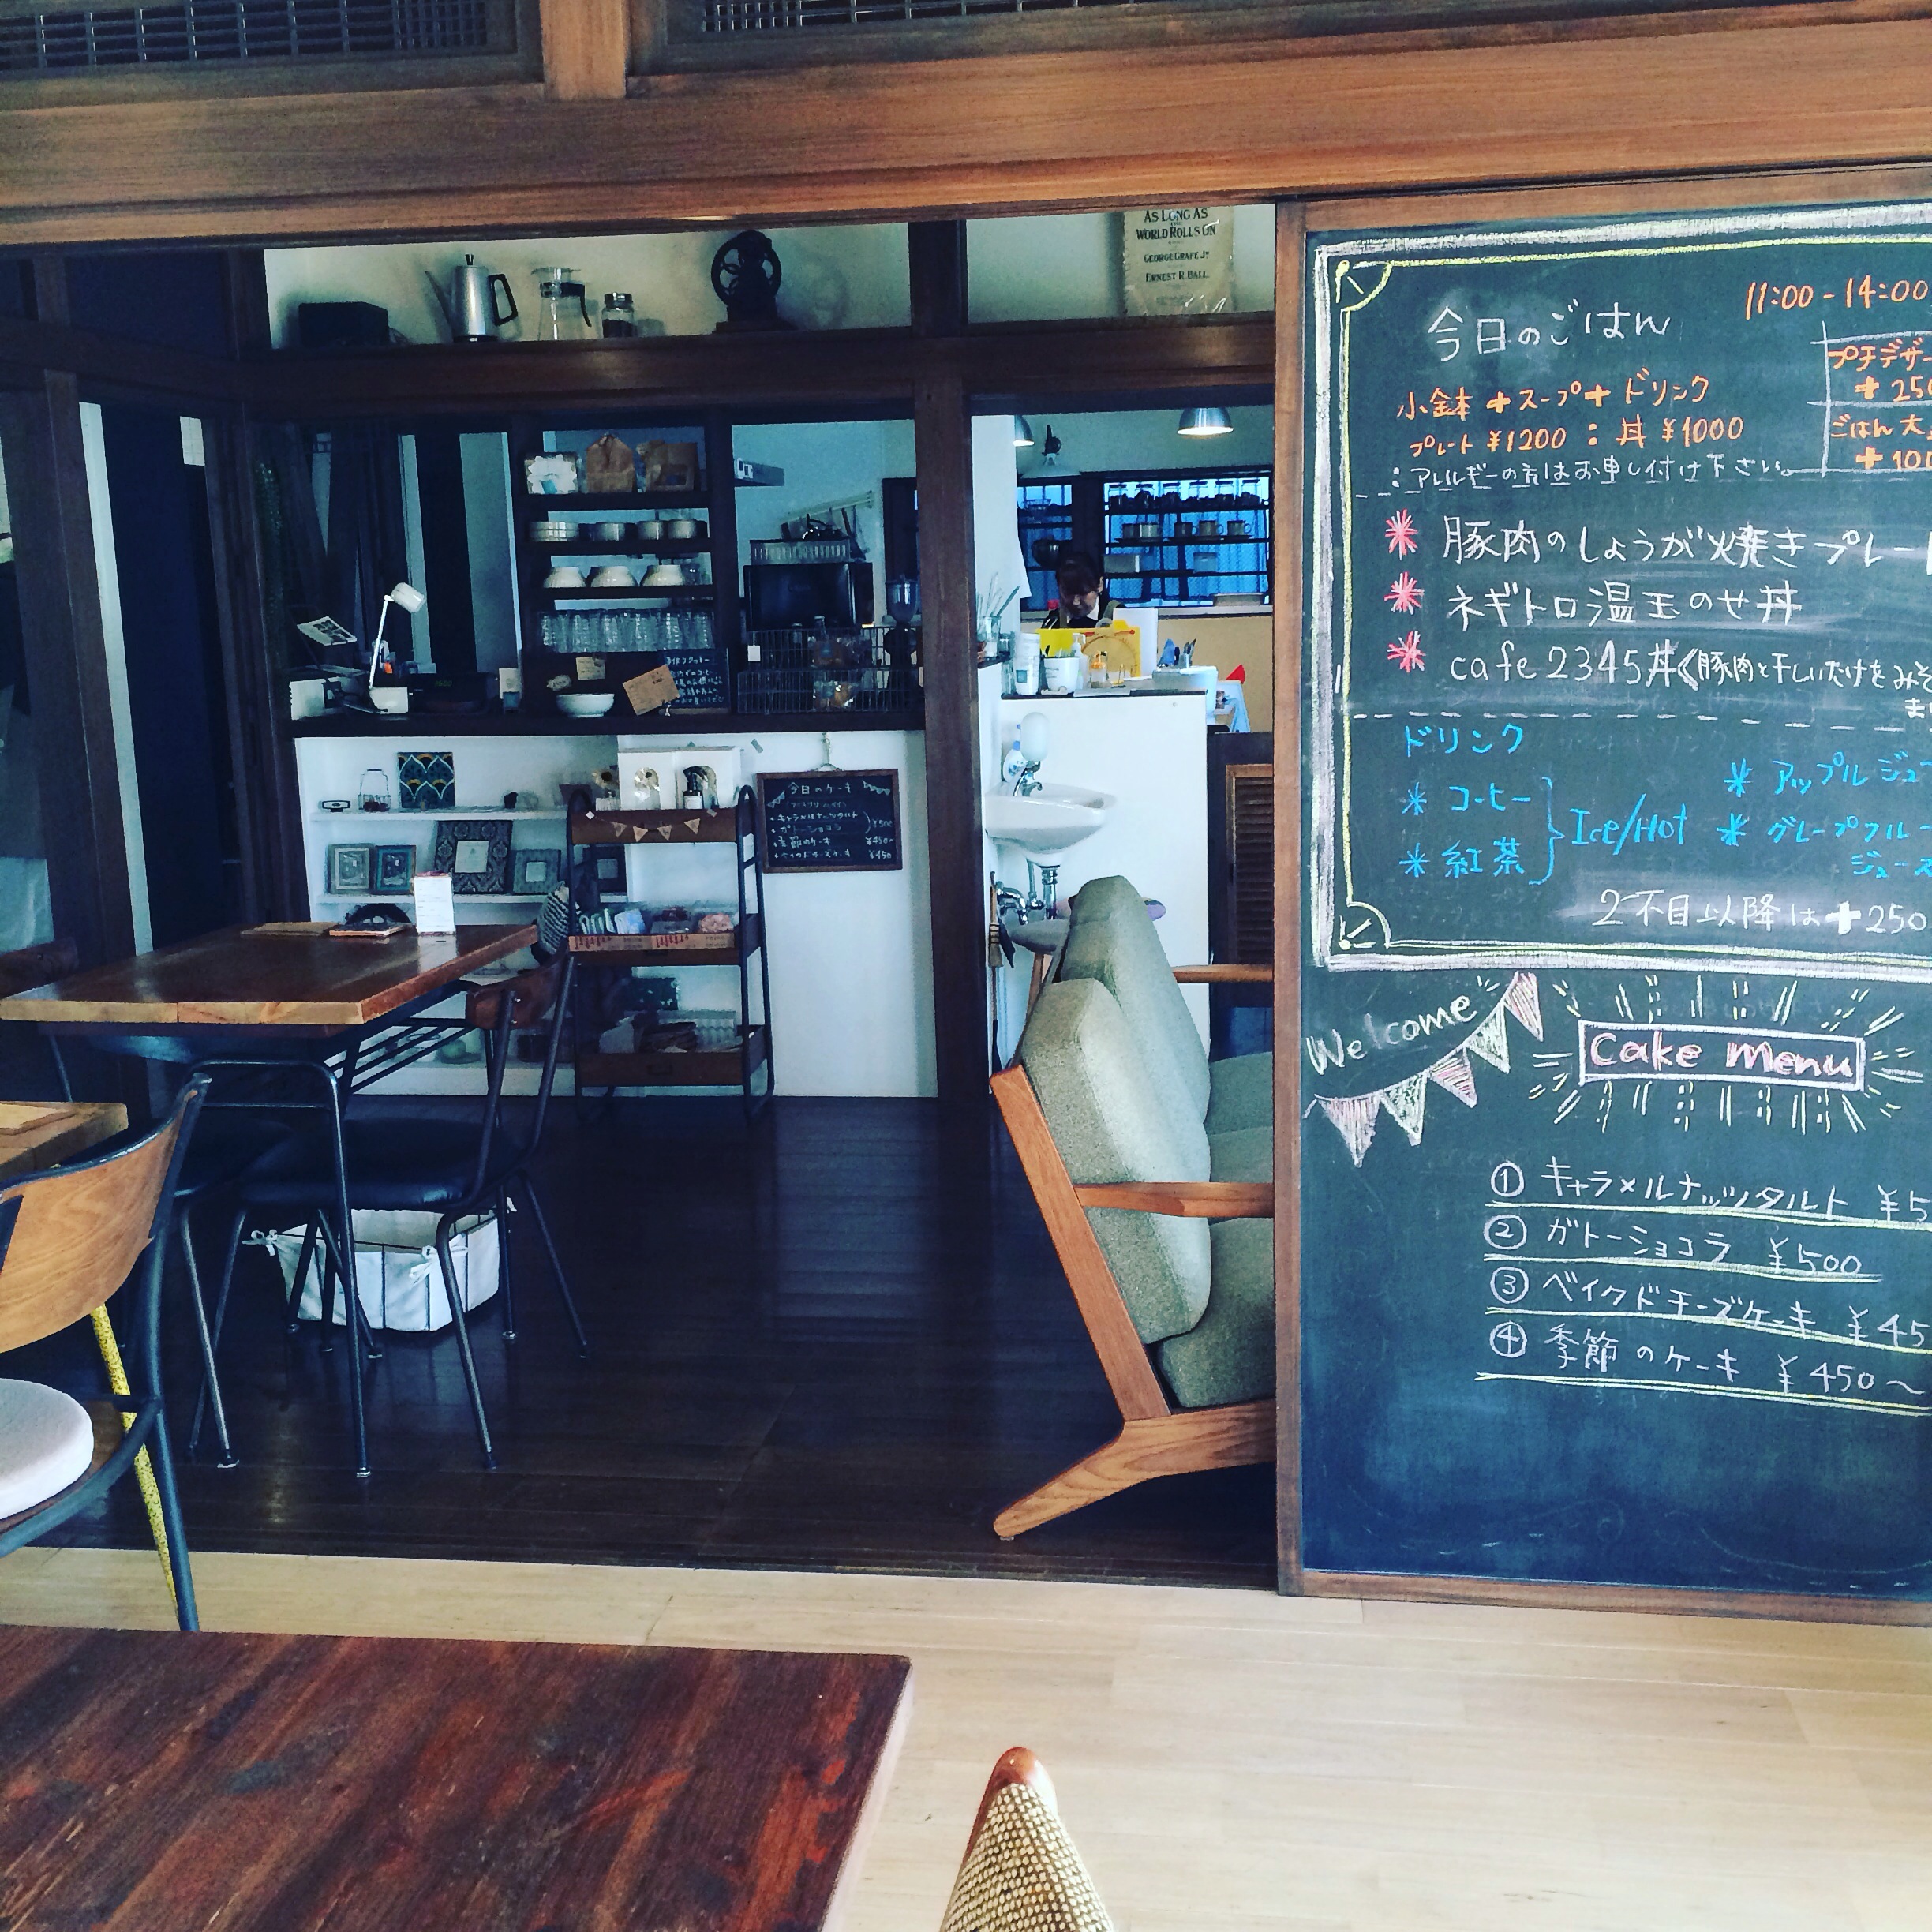 AS LONG AS
WORLD ROLLS ON
GEORGE GRAFF, Jr.
ERNEST R. BALL.
今日のケーキ
・キャラメルナッツタルト
・ガトーショコラ ¥500
・季節のケーキ ¥450~
・ベイクドチーズケーキ ¥450
今日のごはん
11:00-14:00
小鉢+スープ+ドリンク
プレート ¥1200 : 丼 ¥1000
:アレルギーの方はお申し付け下さい。
プチデザー
+250
ごはん大
+100
* 豚肉のしょうが焼きプレート
* ネギトロ温玉のせ丼
* cafe 2345丼(豚肉と干しいたけをみそ
ドリンク
* コーヒー
* 紅茶
Ice/Hot
* アップルジュー
* グレープフルー
ジュース
2杯目以降は+250
Welcome
Cake menu
① キャラメルナッツタルト ¥5
② ガトーショコラ ¥500
③ ベイクドチーズケーキ ¥45
④ 季節のケーキ ¥450~